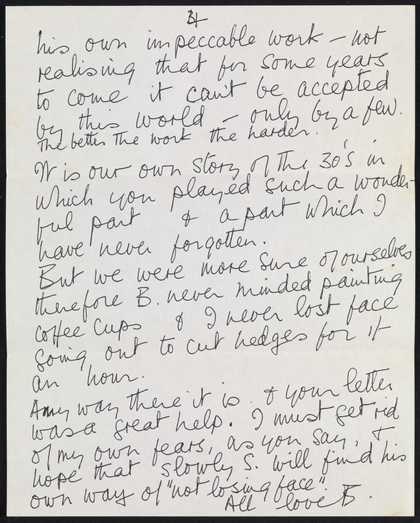 24
his own impeccable work – not
realising that for some years
to come it can't be accepted
by this world – only by a few.
The better the work the harder.
It is our own story of the 30's in
which you played such a wonder-
ful part & a part which I
have never forgotten.
But we were more sure of ourselves
therefore B. never minded painting
coffee cups & I never lost face
going out to cut hedges for 1/-
an hour.
Anny way there it is & your letter
was a great help. I must get rid
of my own fears, as you say, &
hope that slowly S. will find his
own way of "not losing face".
All love B.